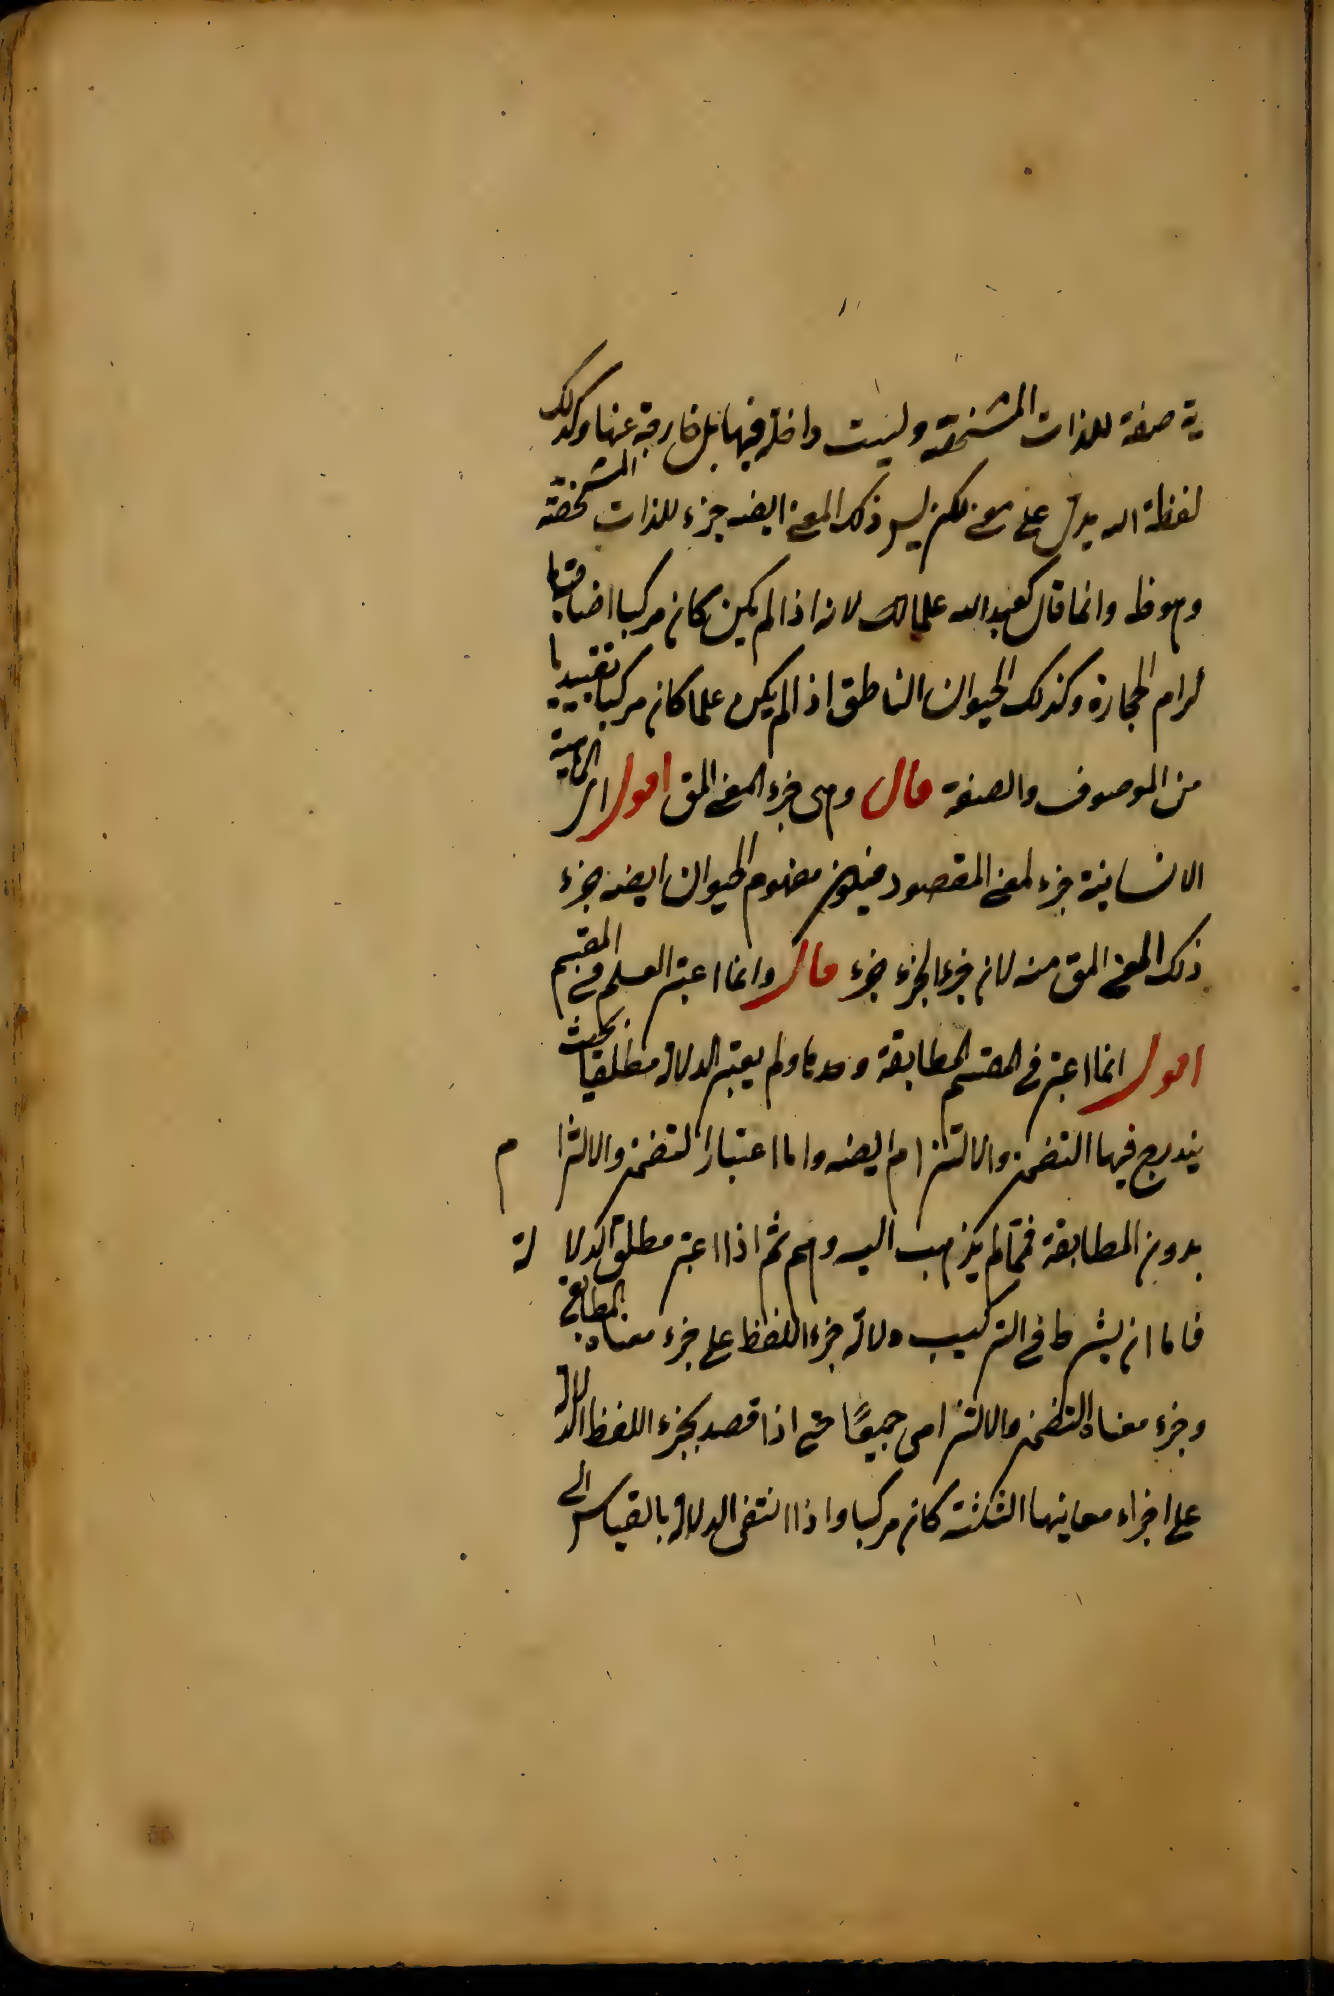 ية صفة للذات المشخصة وليست داخلة فيها بل خارجة عنها وكذلك
لفظة الله يدل على معنى لكن ليس ذلك المعنى ايضه جزء للذات المشخصة
وهو ظ وانما قال كعبد الله علما لك لانه اذا لم يكن كان مركبا اضافيا
كرام الحجارة وكذلك الحيوان الناطق اذا لم يكن علما كان مركبا تقييديا
من الموصوف والصفة قال وهي جزء المعنى المق اقول اى الماهية
الانسانية جزء لمعنى المقصود فيكون مفهوم الحيوان ايضه جزء
ذلك المعنى المق منه لان جزء الجزء جزء قال وانما اعتبر العلم في المقسم
اقول انما اعتبر في المقسم المطابقة وحدها ولم يعتبر الدلالة مطلقا بحيث
يندرج فيها التضمن والالتزام ايضه واما اعتبار التضمن والالتزا م
بدون المطابقة فمما لم يذهب اليه وهم ثم اذا اعتبر مطلق الدلا لة
فاما ان يشترط في التركيب دلالة جزء اللفظ على جزء معناه المطابقى
وجزء معناه التضمن والالتزامى جميعًا حتى اذا قصد بجزء اللفظ الدلالة
على اجزاء معانيها الثلثة كان مركبا واذا انتفى الدلالة بالقياس الى